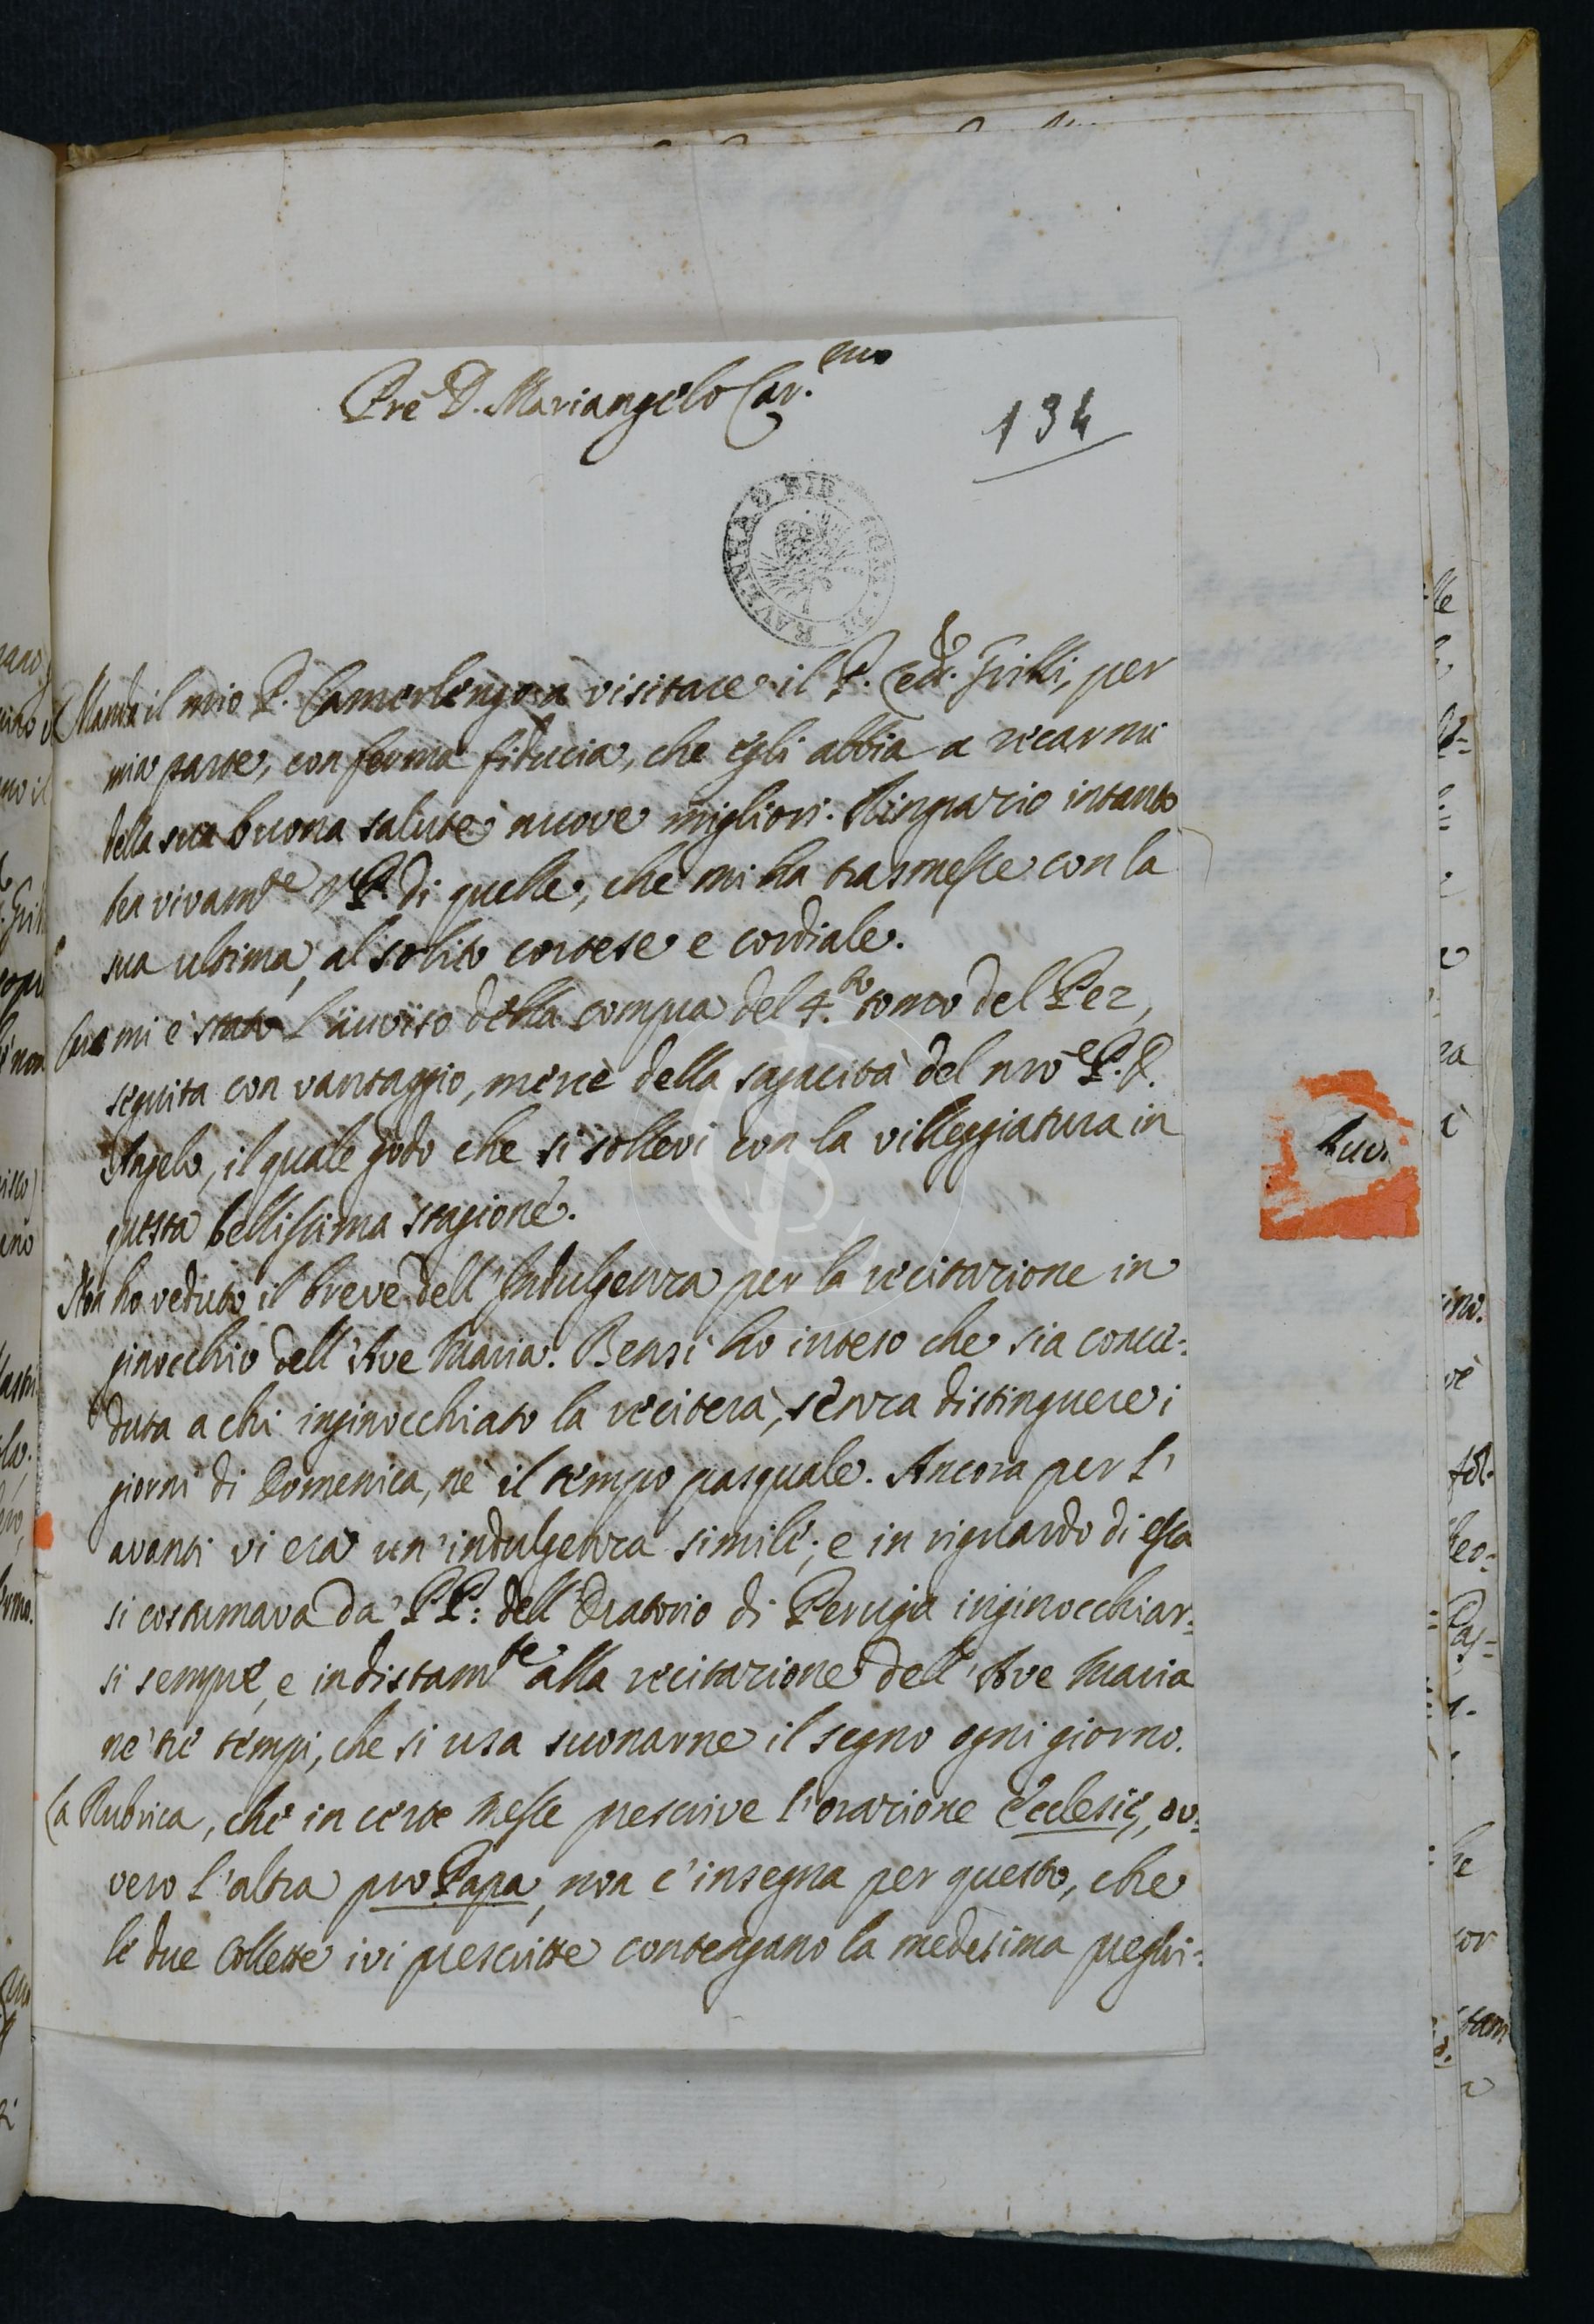 Prē D. Mariangelo Car.mo
134
Manda il mio P. Camerlengo a visitare il P. Grilli, per
mia parte, con ferma fiducia, che egli abbia a recarmi
della sua buona salute nuove migliori. Ringrazio intanto
ben vivamte VP. di quelle, che mi ha trasmesse con la
sua ultima, al solito cortese e cordiale.
mi è stato l'avviso della compra del 4.to tomo del Pez,
seguita con vantaggio, mercè della sagacità del nrō P. D.
Angelo, il quale godo che si sollevi con la villeggiatura in
questa bellissima stagione.
Non ho veduto il breve dell'Indulgenza per la recitazione in
ginocchio dell'Ave Maria. Bensì ho inteso che sia conce=
duta a chi inginocchiato la reciterà, senza distinguere i
giorni di Domenica, nè il tempo pasquale. Ancora per l'
avanti vi era un'indulgenza simile; e in riguardo di essa
si costumava da' PP: dell'Oratorio di Perugia inginocchiar=
si sempre, e indistamte alla recitazione dell'Ave Maria
ne' trè tempi, che si usa suonarne il segno ogni giorno.
La Rubrica, che in certe Messe prescrive l'orazione Ecclesię, ov=
vero l'altra pro Papa, non c'insegna per questo, che
le due Collette ivi prescritte contengano la medesima preghi=